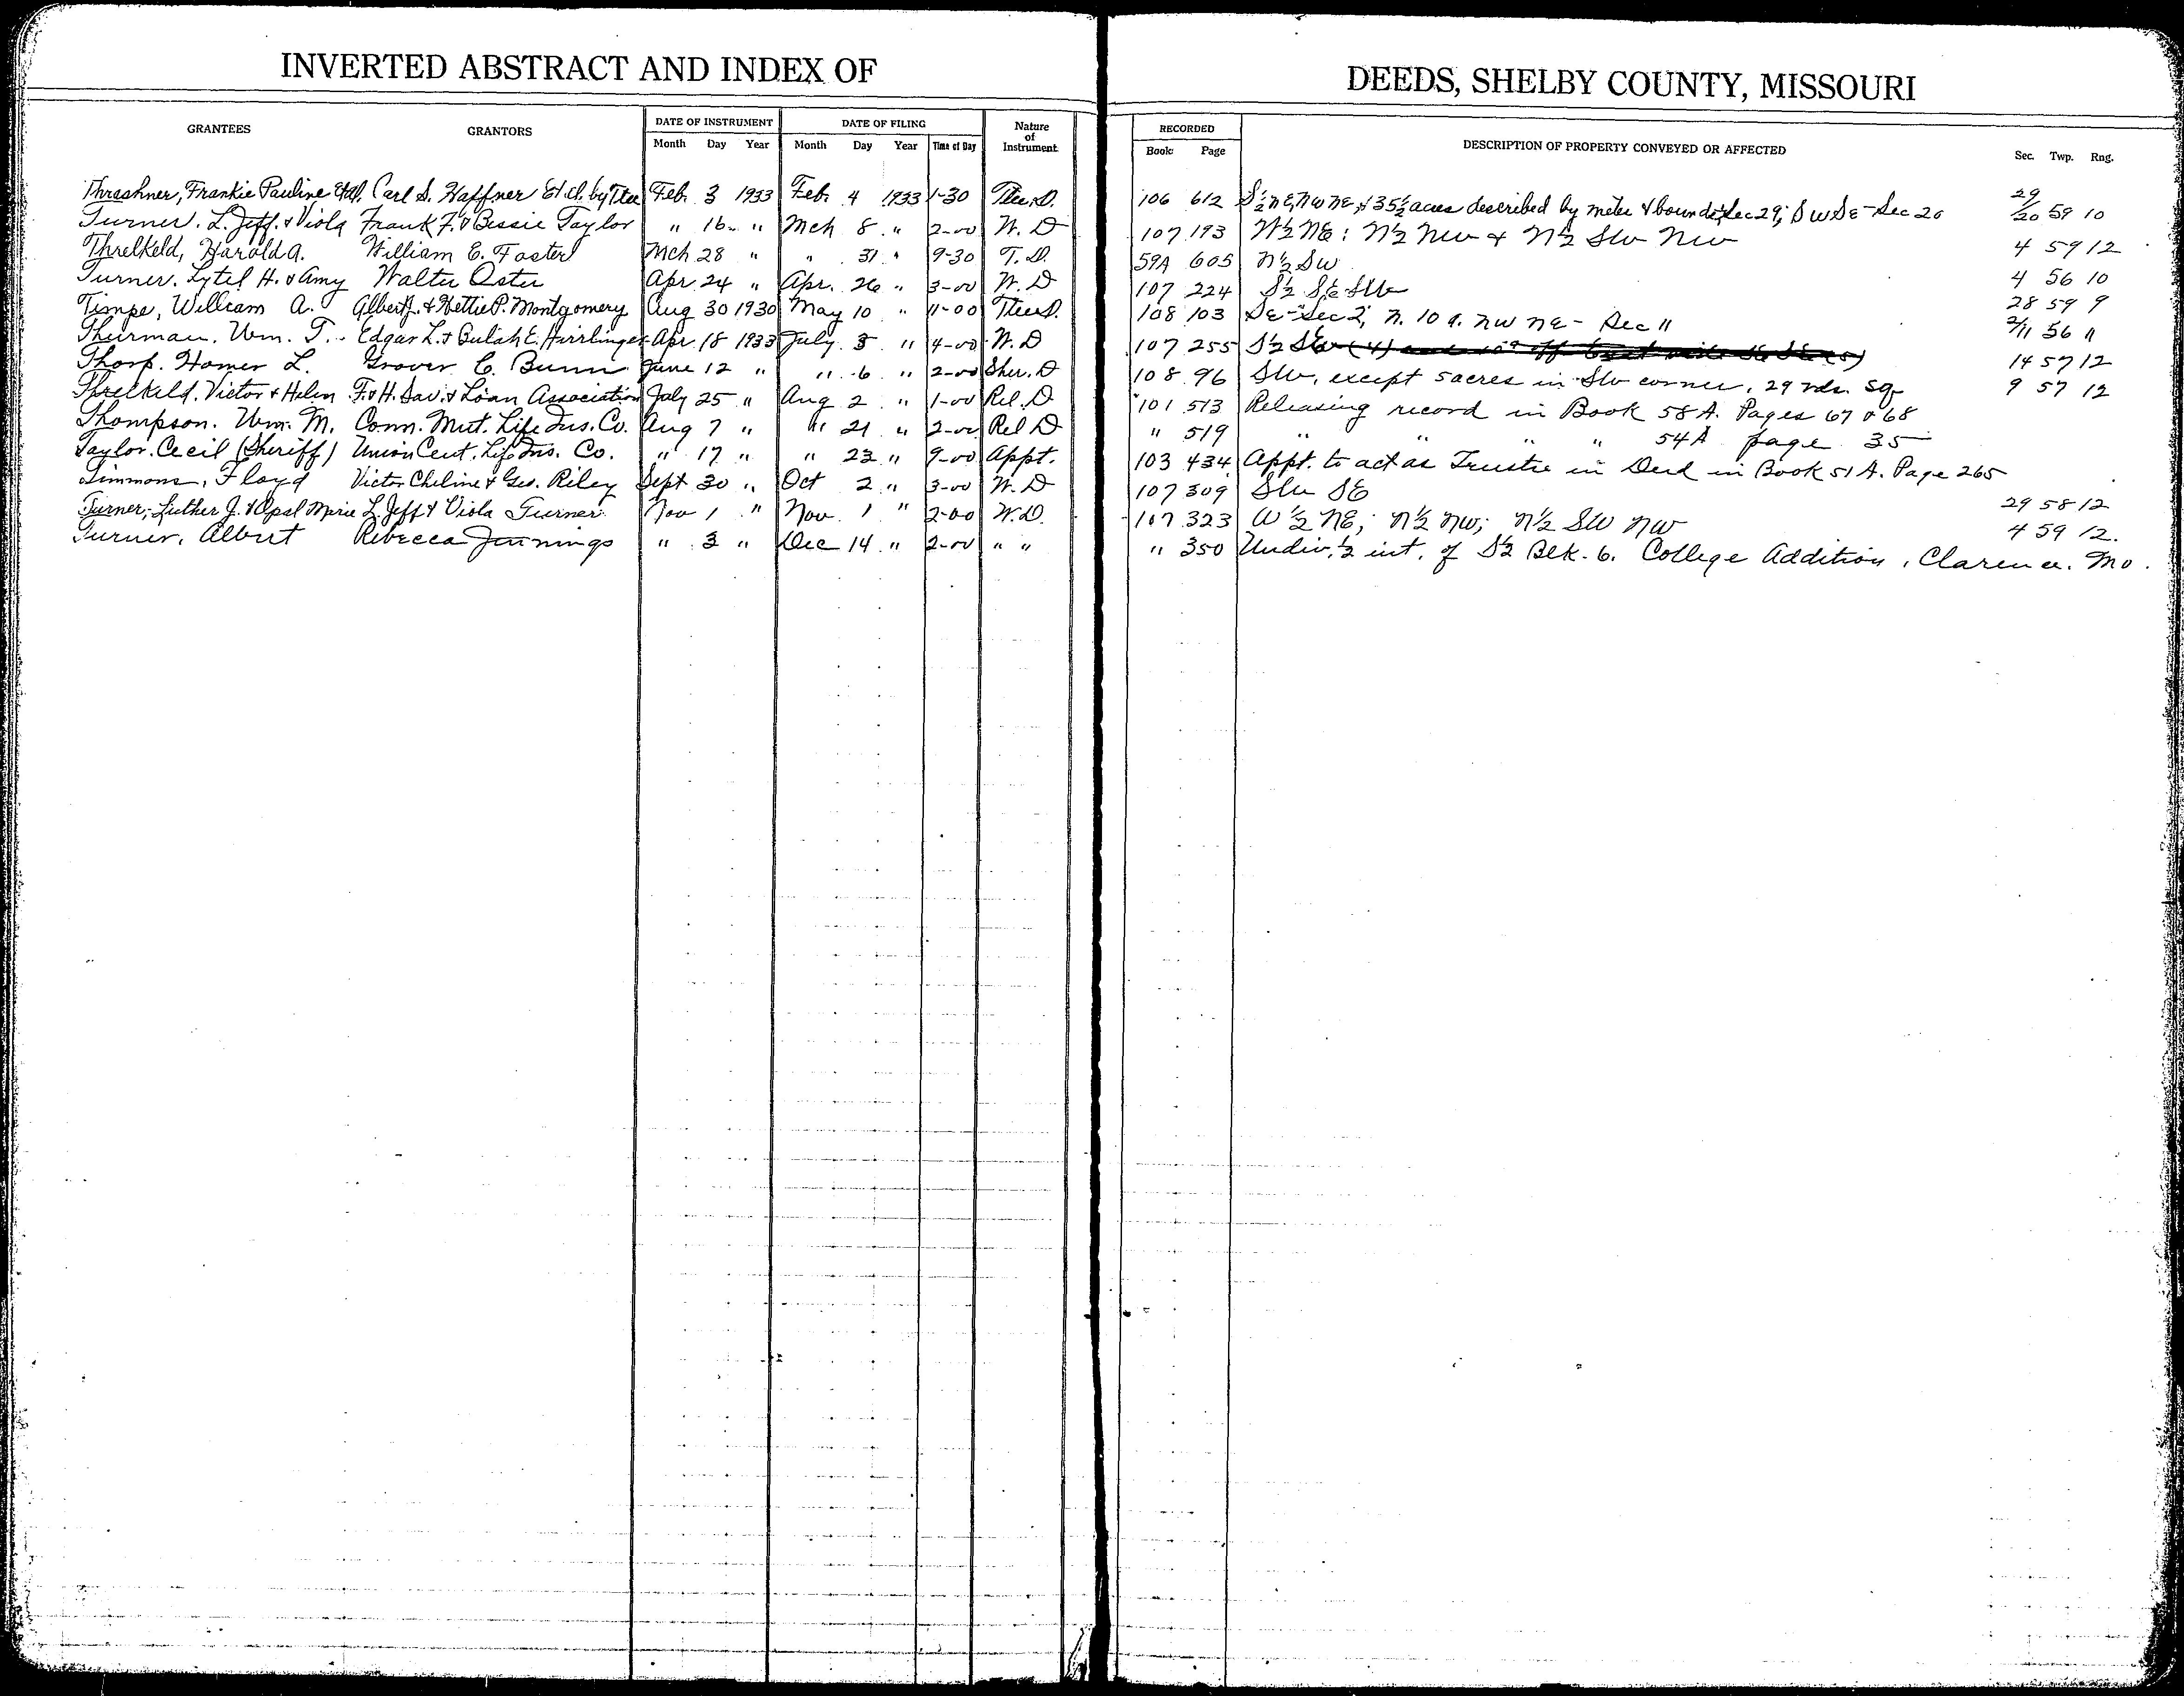 INVERTED ABSTRACT AND INDEX OF DEEDS, SHELBY COUNTY, MISSOURI
GRANTEES GRANTORS DATE OF INSTRUMENT DATE OF FILING Nature of Instrument RECORDED DESCRIPTION OF PROPERTY CONVEYED OR AFFECTED Sec. Twp. Rng.
Month Day Year Month Day Year Time of Day Book Page
Thrashner, Frankie Pauline Etal, Carl S. Haffner Et al. by Ttee Feb. 3 1933 Feb. 4 1933 1-30 Ttee.D. 106 612 S½ NE, NW NE, & 35½ acres described by mete & bounds, Sec 29; SW SE - Sec 20 29/20 59 10
Turner. L. Jeff. & Viola Frank F. & Bessie Taylor " 16 " Mch 8 " 2-00 W. D 107 193 W½ NE; N½ NW & N½ SW NW 4 59 12
Threlkeld, Harold A. William E. Foster Mch 28 " " 31 " 9-30 T. D. 59A 605 N½ SW 4 56 10
Turner. Lytel H. & Amy Walter Oster Apr 24 " Apr. 26 " 3-00 W. D 107 224 S½ SE SW 28 59 9
Timpe, William A. Albert J. & Hettie P. Montgomery Aug 30 1930 May 10 " 11-00 Ttee D. 108 103 SE - Sec 2, N. 10 a. NW NE - Sec 11 2/11 56 11
Thurman. Wm. T. Edgar L. & Bulah E. Hirrlinger Apr. 18 1933 July 3 " 4-00 W. D 107 255 S½ SW (4) 14 57 12
Thorp. Homer L. Grover C. Bunn June 12 " " 6 " 2-00 Sher. D 108 96 SW, except 5 acres in SW corner, 29 rds. sq. 9 57 12
Threlkeld. Victor & Helen F. & H. Sav. & Loan Association July 25 " Aug 2 " 1-00 Rel. D 101 513 Releasing record in Book 58 A. Pages 67 & 68
Thompson. Wm. M. Conn. Mut. Life Ins. Co. Aug 7 " " 21 " 2-00 Rel D " 519 " " " " 54A page 35
Taylor. Cecil (Sheriff) Union Cent. Life Ins. Co. " 17 " " 23 " 9-00 Appt. 103 434 Appt. to act as Trustee in Deed in Book 51 A. Page 265
Timmons, Floyd Victor Cheline & Geo. Riley Sept 30 " Oct 2 " 3-00 W. D 107 309 SW SE 29 58 12
Turner, Luther J. & Opal Marie L. Jeff & Viola Turner Nov 1 " Nov. 1 " 2-00 W.D. 107 323 W½ NE; N½ NW; N½ SW NW 4 59 12.
Turner, Albert Rebecca Jennings " 3 " Dec 14 " 2-00 " " " 350 Undiv. ½ int. of S½ Blk. 6. College Addition, Clarence. Mo.